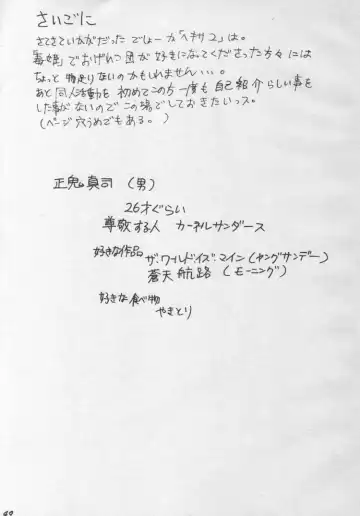 さいごに
さてさていかがだったでしょーか「ヘキサ2」は。
毒娘」でおげれつ団が好きになってくださった方々には
ちょっと物足りないのかもしれません…。
あと同人活動を初めてこの方一度も自己紹介らしい事を
した事がないのでこの場でしておきたいっス。
(ページ穴うめでもある。)
正鬼真司 (男)
26才ぐらい
尊敬する人 カーネルサンダース
好きな作品 ザ・ワールドイズ・マイン(ヤングサンデー)
蒼天航路 (モーニング)
好きな食べ物
やきとり
49